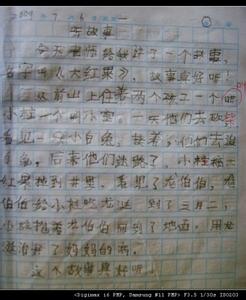 2009 年 7 月 6 日 一
听故事
今天老师给我讲了一个故事,
名字叫《大红果》,故事真好听!
从前山上住着两个孩子一个叫
小桂一个叫水宝。一天他们去砍柴
看见一只小白兔,接着,他们去追
白兔。后来他们迷路了。小桂摘
红果 到井里。看见了龙伯伯,龙
伯伯给小桂 。到了三月二,
小桂 着伯伯回到了地面,用龙
治好了妈妈的病。
这个故事真好听!
<Digimax i6 PMP, Samsung #11 PMP> F3.5 1/30s ISO200